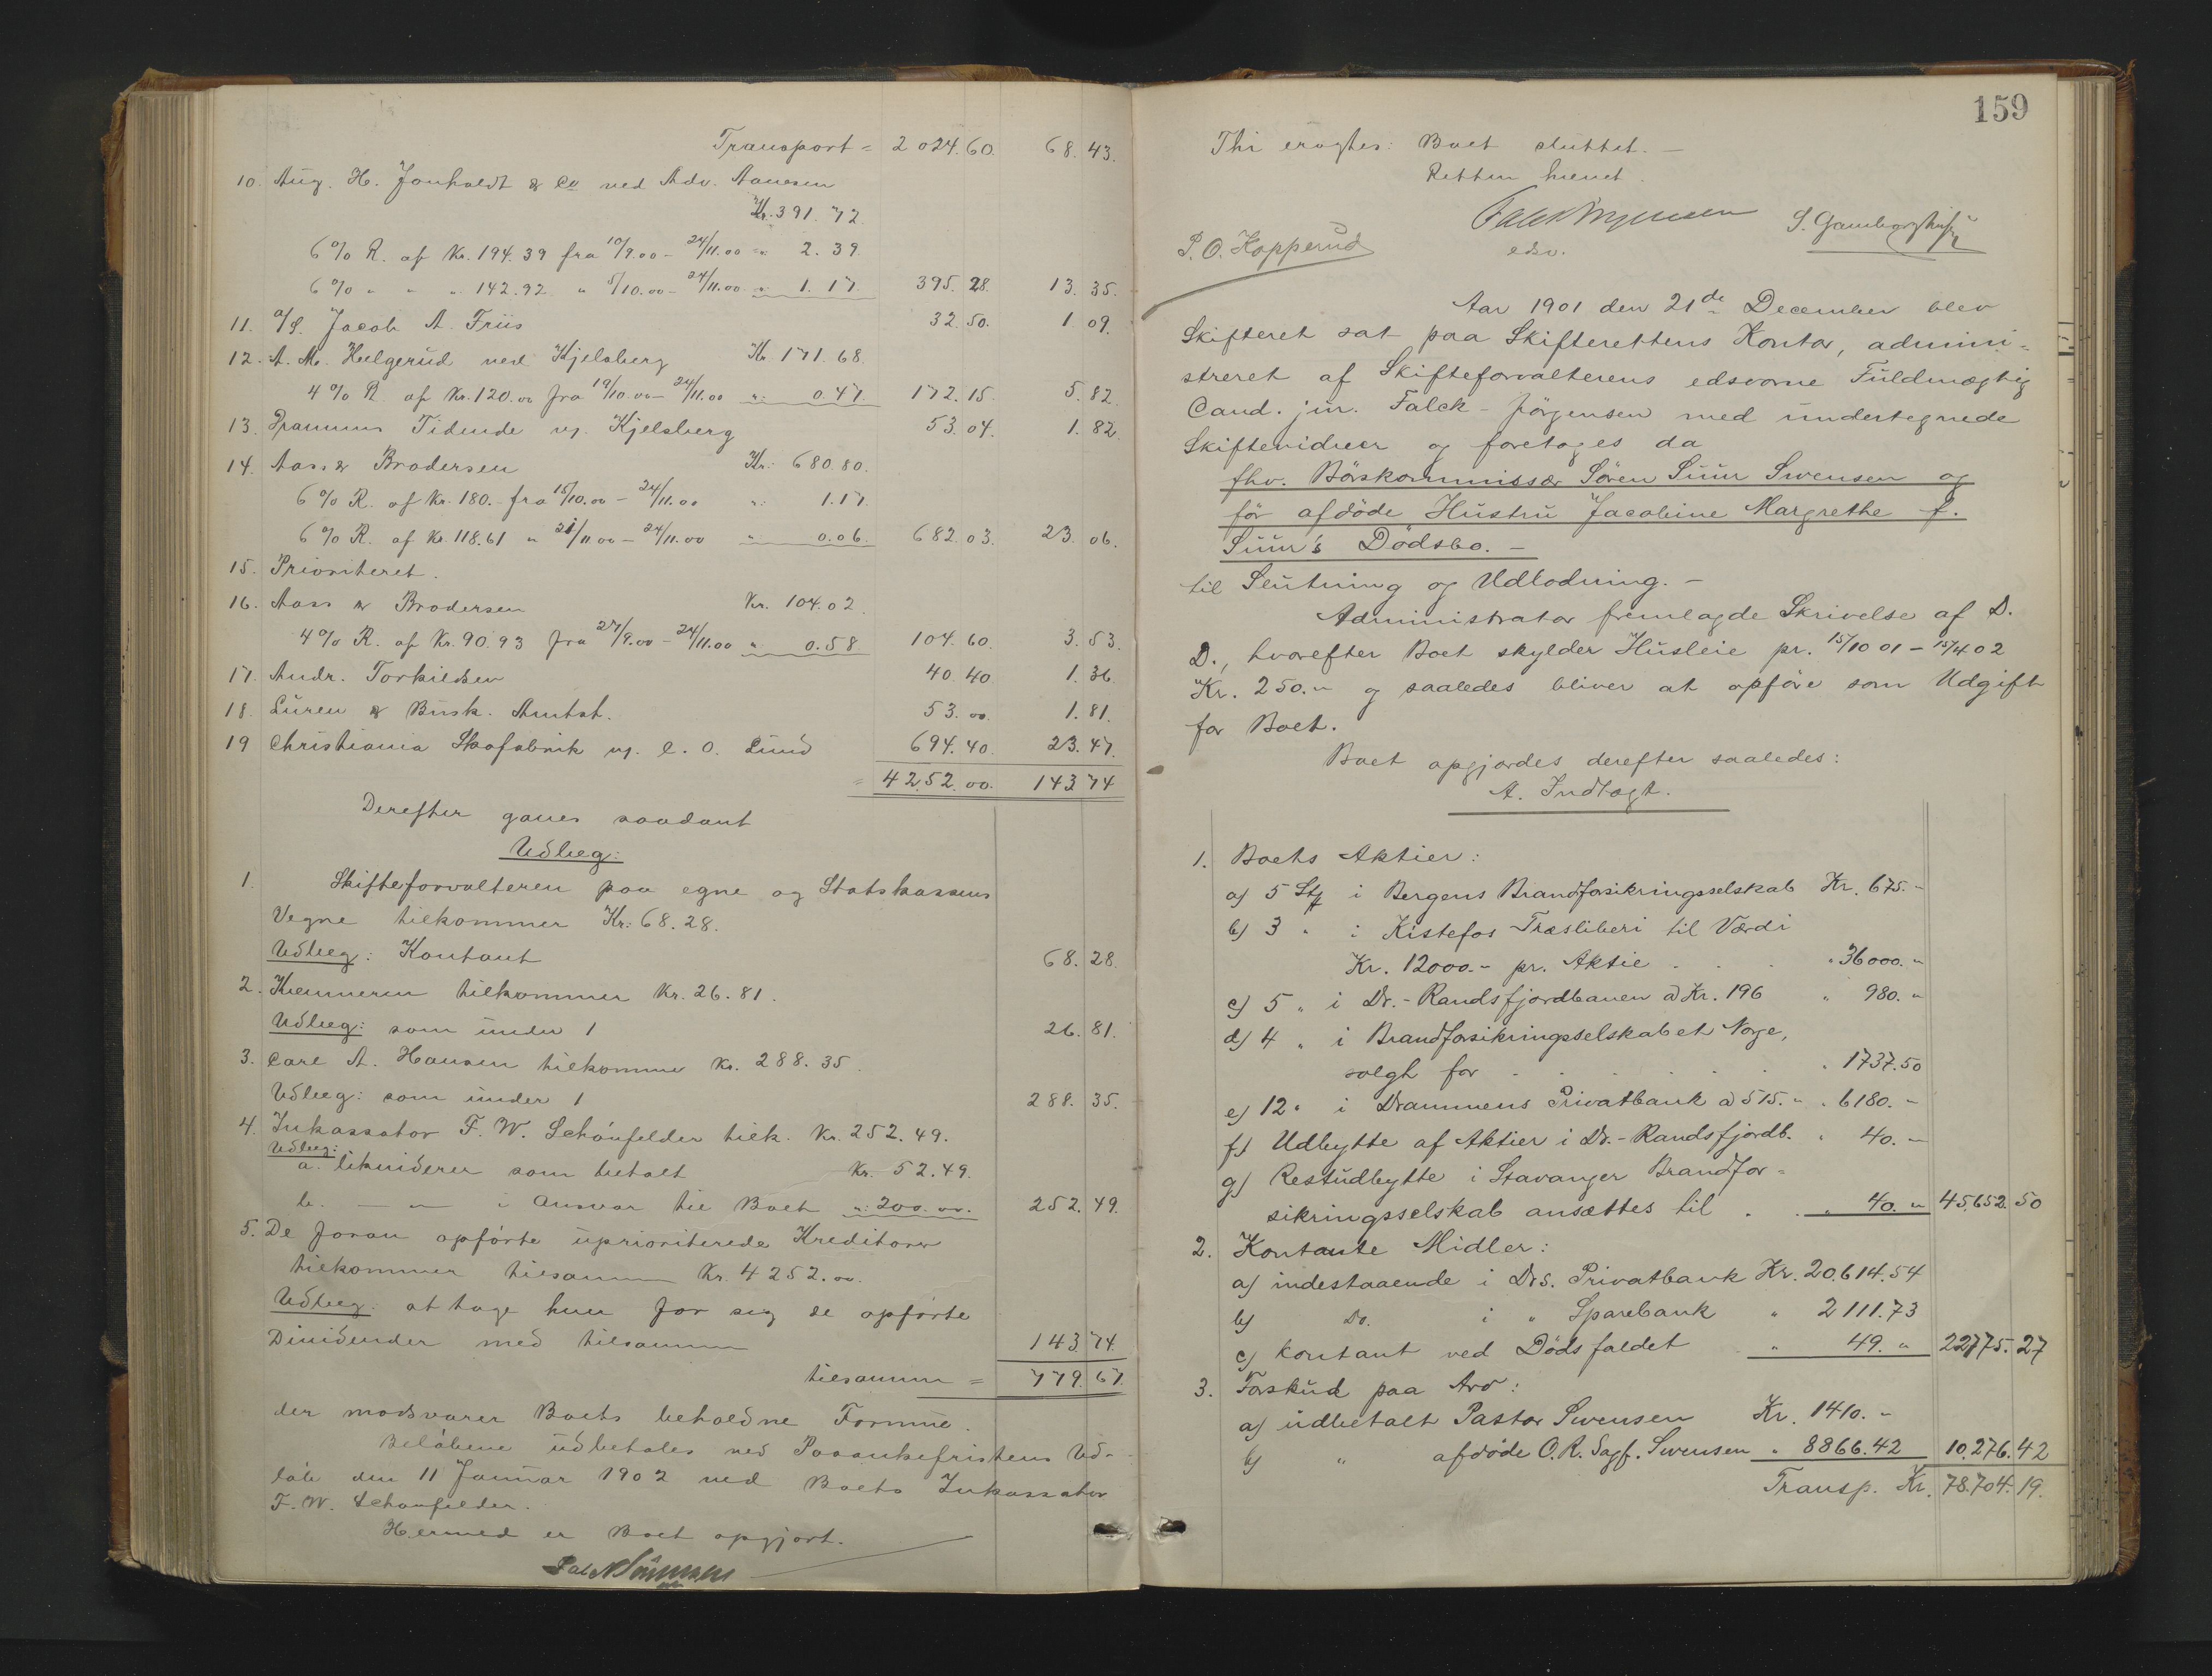 Transport = 2024.60. 68.43.
10. Aug. H. Jonholdt & Co ved Adv. Aanesen
Kr. 391.72.
6% R. af Kr. 194.39 fra 10/9.00 - 24/11.00 " 2.39.
6% " " " 142.92 " 5/10.00 - 24/11.00 " 1.17. 395.28. 13.35.
11. A/S. Jacob A. Friis 32.50. 1.09.
12. A. M. Helgerud ved Kjelsberg Kr. 171.68.
4% R. af Kr. 120.00 fra 19/10.00 - 24/11.00 " 0.47. 172.15. 5.82.
13. Drammens Tidende v. Kjelsberg 53.04. 1.82.
14. Aass & Brodersen Kr. 680.80.
6% R. af Kr. 180.- fra 15/10.00 - 24/11.00 " 1.17.
6% R. af Kr. 118.61 " 21/11.00 - 24/11.00 " 0.06. 682.03. 23.06.
15. Prioriteret.
16. Aass & Brodersen Kr. 104.02.
4% R. af Kr. 90.93 fra 27/9.00 - 24/11.00 " 0.58 104.60. 3.53.
17. Andr. Torkildsen 40.40 1.36.
18. Buren & Busk. Amtst. 53.00. 1.81.
19 Christiania Skofabrik v. C. O. Lund 694.40. 23.47.
= 4252.00. 143.74
Derefter gaves saadant
Udlæg:
1. Skifteforvalteren paa egne og Statskassens
Vegne tilkommer Kr: 68.28.
Udlæg: Kontant 68.28.
2. Kemneren tilkommer Kr. 26.81.
Udlæg: som under 1 26.81.
3. Carl A. Hansen tilkommer Kr. 288.35.
Udlæg: som under 1 288.35.
4. Inkassator F. W. Schönfelder tilk. Kr. 252.49.
Udlæg:
a. likviderer som betalt Kr. 52.49.
b. — " — i Ansvar til Boet " 200.00. 252.49.
5. De foran opførte uprioriterede Kreditorer
tilkommer tilsammen Kr. 4252.00.
Udlæg: at tage hver for sig de opførte
Dividender med tilsammen 143.74.
tilsammen = 779.67.
der modsvarer Boets beholdne Formue.
Beløbene udbetales ved Paaankefristens Ud-
løb den 11 Januar 1902 ved Boets Inkassator
F. W. Schönfelder.
Hermed er Boet opgjort.
159
Thi eragtes: Boet sluttet. —
Retten hævet.
P. O. Kopperud
edsv.
Aar 1901 den 21de December blev
Skifteret sat paa Skifterettens Kontor, admini-
streret af Skifteforvalterens edsvorne Fuldmægtig
Cand. jur. Falck-Jörgensen med undertegnede
Skiftevidner og foretoges da
fhv. Börskommissær Sören Suur Swensen og
för afdöde Hustru Jacobine Margrethe f.
Suur's Dödsbo. —
til Slutning og Udlodning. —
Administrator fremlagde Skrivelse af D.
D., hvorefter Boet skylder Husleie pr. 15/10 01 - 15/4 02
Kr. 250.- og saaledes bliver at opføre som Udgift
for Boet.
Boet opgjordes derefter saaledes:
A. Indtægt.
1. Boets Aktier:
a) 5 Stk i Bergens Brandforsikringsselskab Kr. 675.-
b) 3 " i Kistefos Træsliberi til Værdi
Kr. 12000.- pr. Aktie . . . " 36000.-
c) 5 " i Dr.-Randsfjordbanen a Kr. 196 " 980.-
d) 4 " i Brandforsikringsselskabet Norge,
solgt for . . . . . " 1737.50
e) 12 " i Drammens Privatbank a 515.- " 6180.-
f) Udbytte af Aktier i Dr.-Randsfjordb. " 40.-
g) Restudbytte i Stavanger Brandfor-
sikringsselskab ansættes til . . " 40.- 45,652.50
2. Kontante Midler:
a) indestaaende i Drs. Privatbank Kr. 20,614.54
b) Do. i " Sparebank " 2111.73
c) kontant ved Dödsfaldet " 49." 22775.27
3. Forskud paa Arv:
a) udbetalt Pastor Swensen Kr. 1410.-
b) " afdøde O. R. Sagf. Swensen " 8866.42 10,276.42
Transp. Kr. 78.704.19.